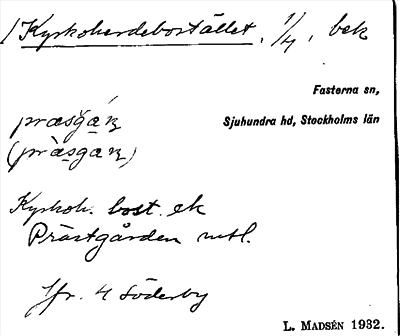 Kyrkoherdebostället, 1/4, bek
Fasterna sn,
Sjuhundra hd, Stockholms län
Kyrkoh. bost. ek
Prästgården mtl.
Jfr. 4 Söderby
L. MADSÉN 1932.